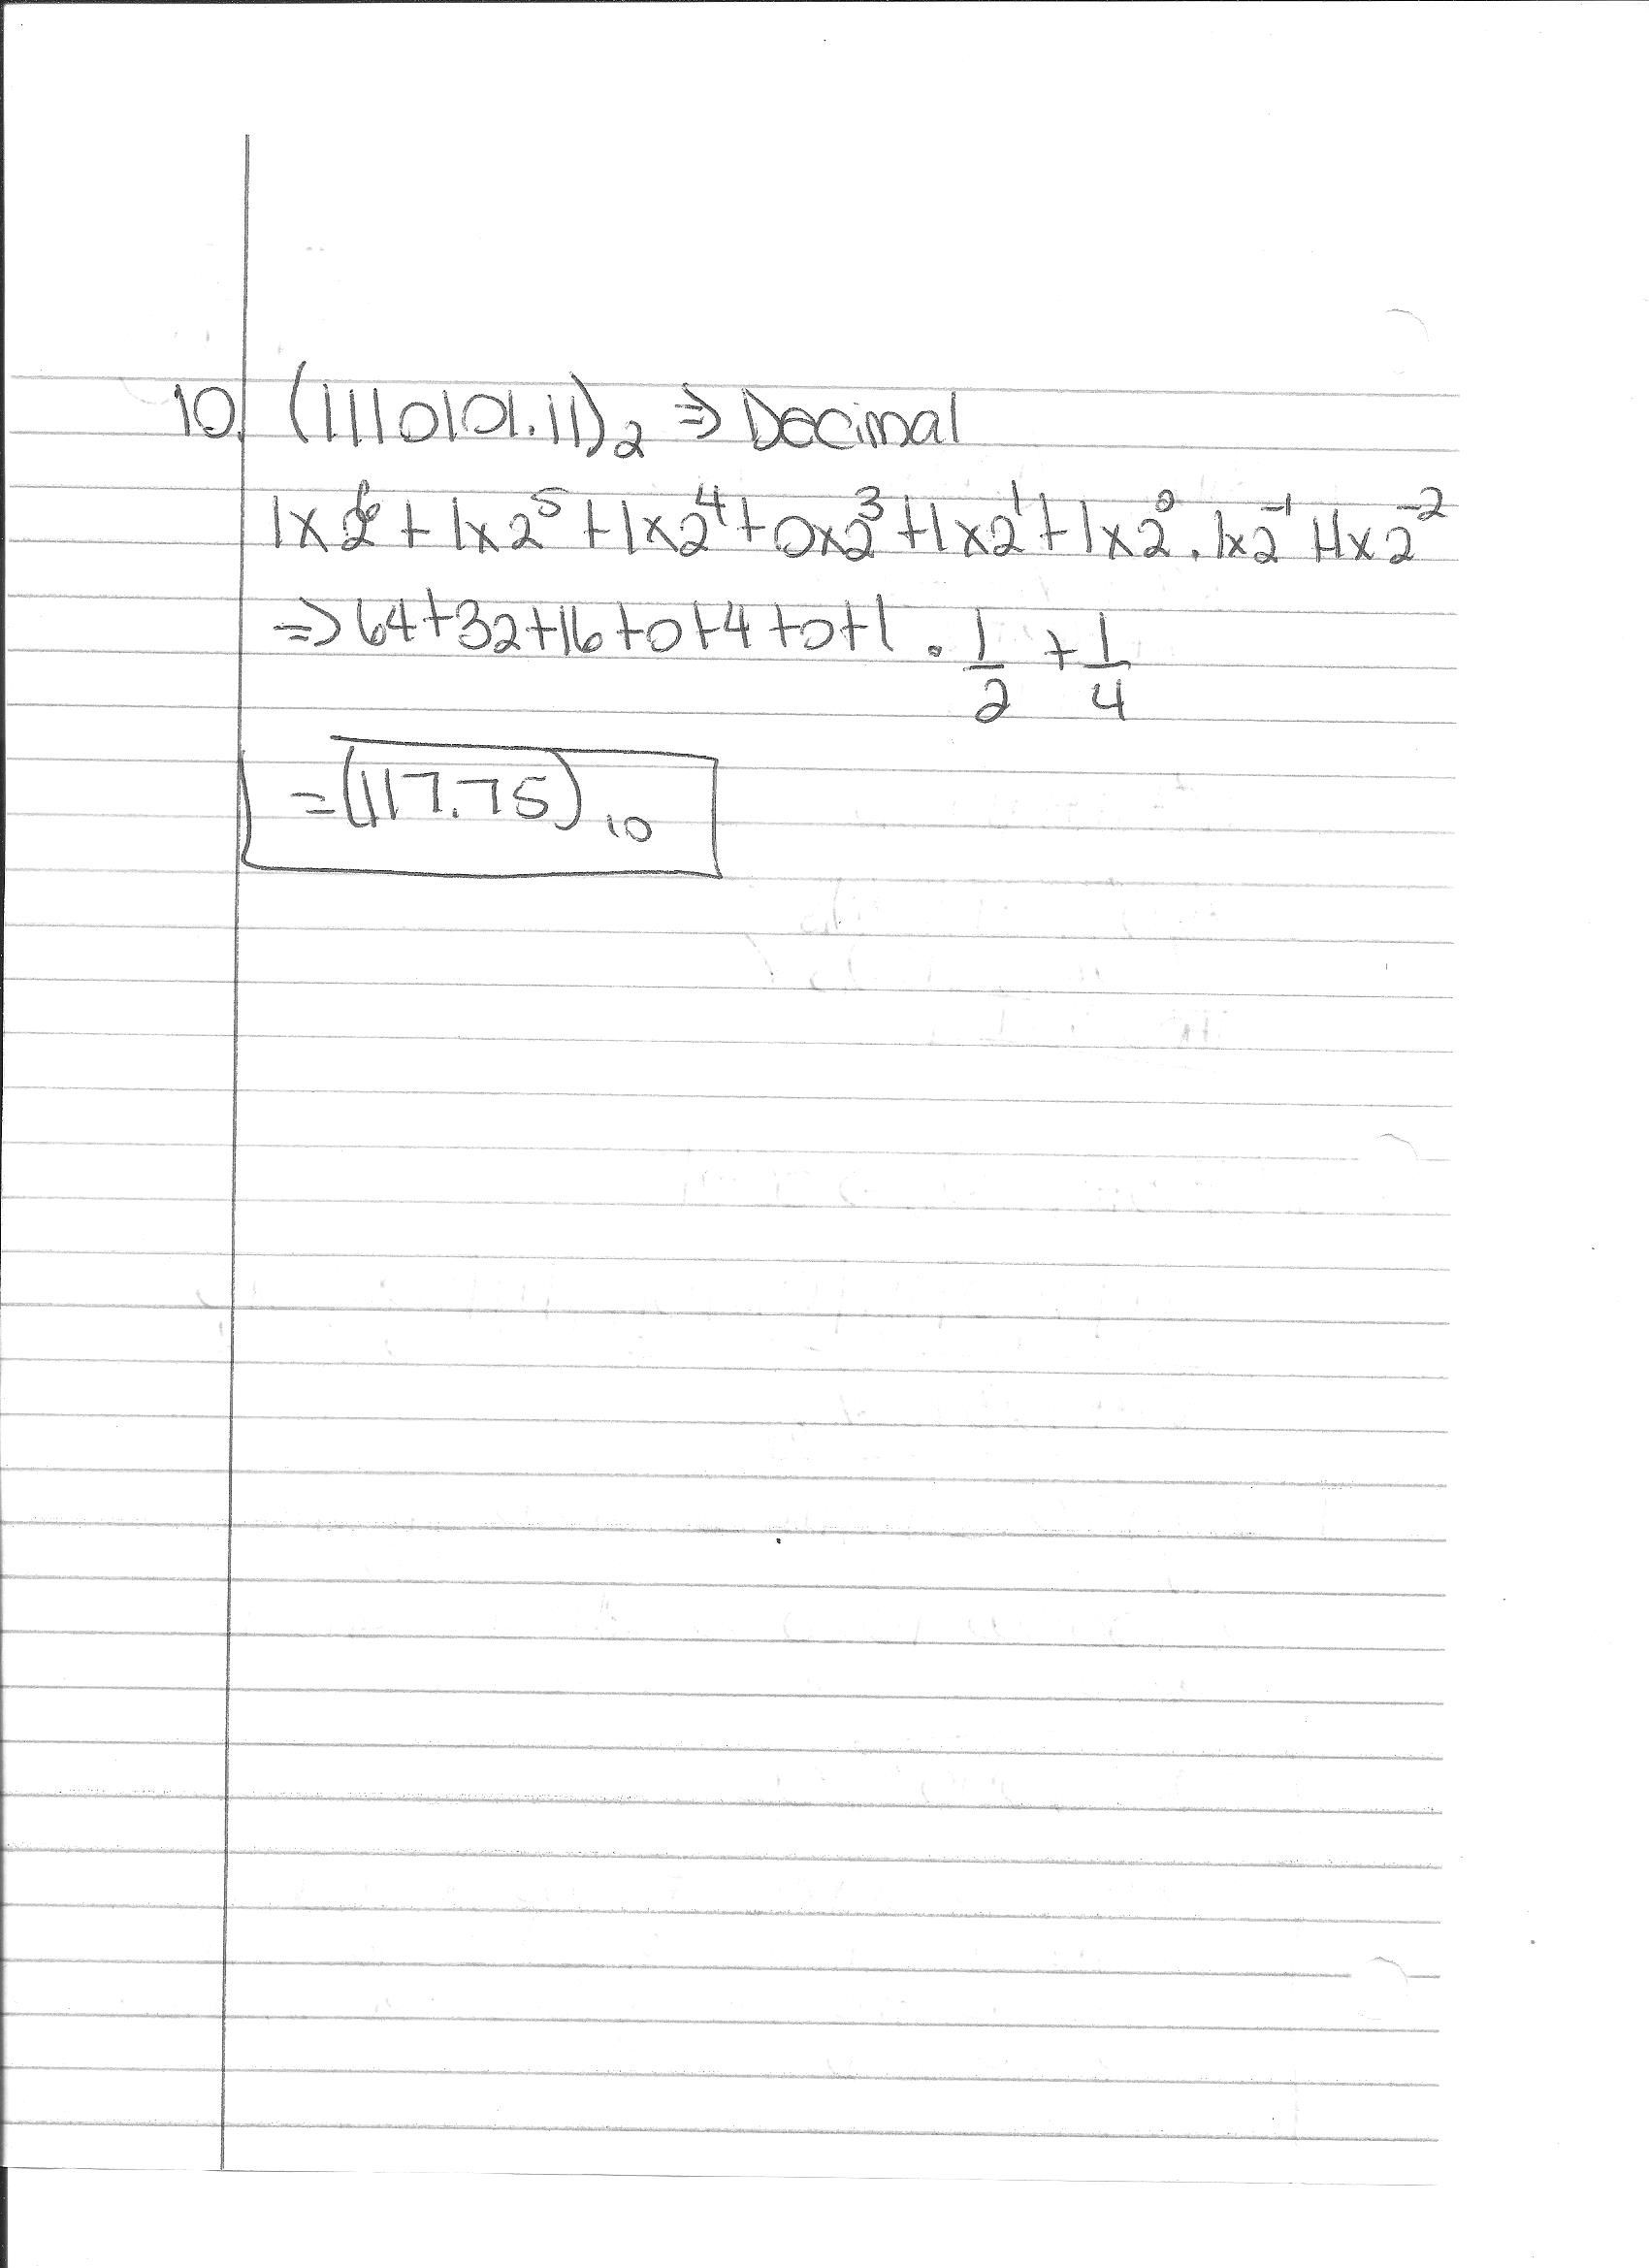 10. (1110101.11)₂ ⇒ Decimal
1x2⁶ + 1x2⁵ + 1x2⁴ + 0x2³ + 1x2¹ + 1x2⁰ . 1x2⁻¹ + 1x2⁻²
⇒ 64+32+16+0+4+0+1 . 1/2 + 1/4
= (117.75)₁₀